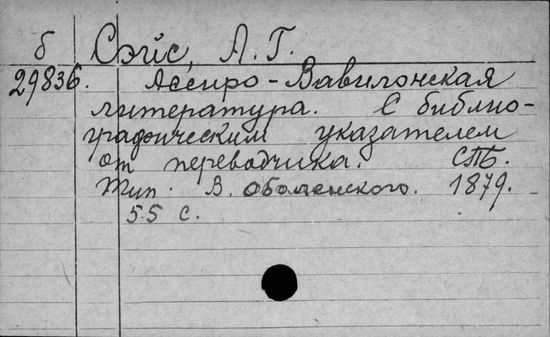 б Сэйс, А. Г.
29836. Ассиро-Вавилонская
литература. С библио-
графическим указателем
от переводчика. СПБ.
Тип. В. Оболенского. 1879.
55 с.